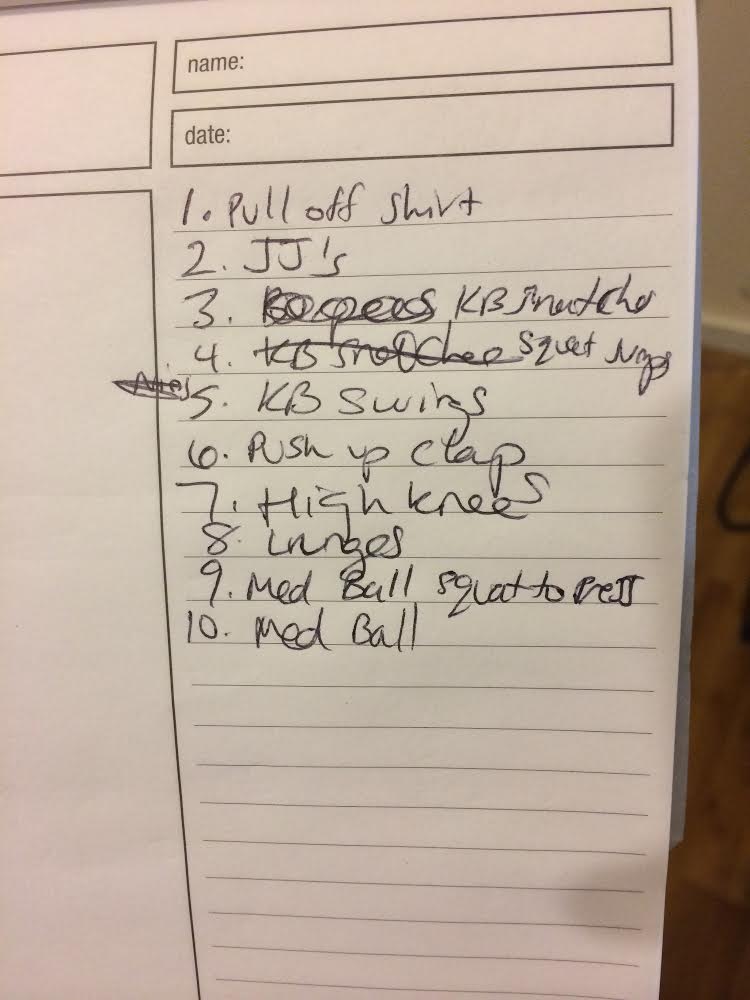 name:
date:
1. Pull off shirt
2. JJ's
3. KB Snatches
4. KB Snatches Squat
5. KB Swings
6. Push up clap
7. High knees
8. Lunges
9. Med Ball squat to Press
10. Med Ball